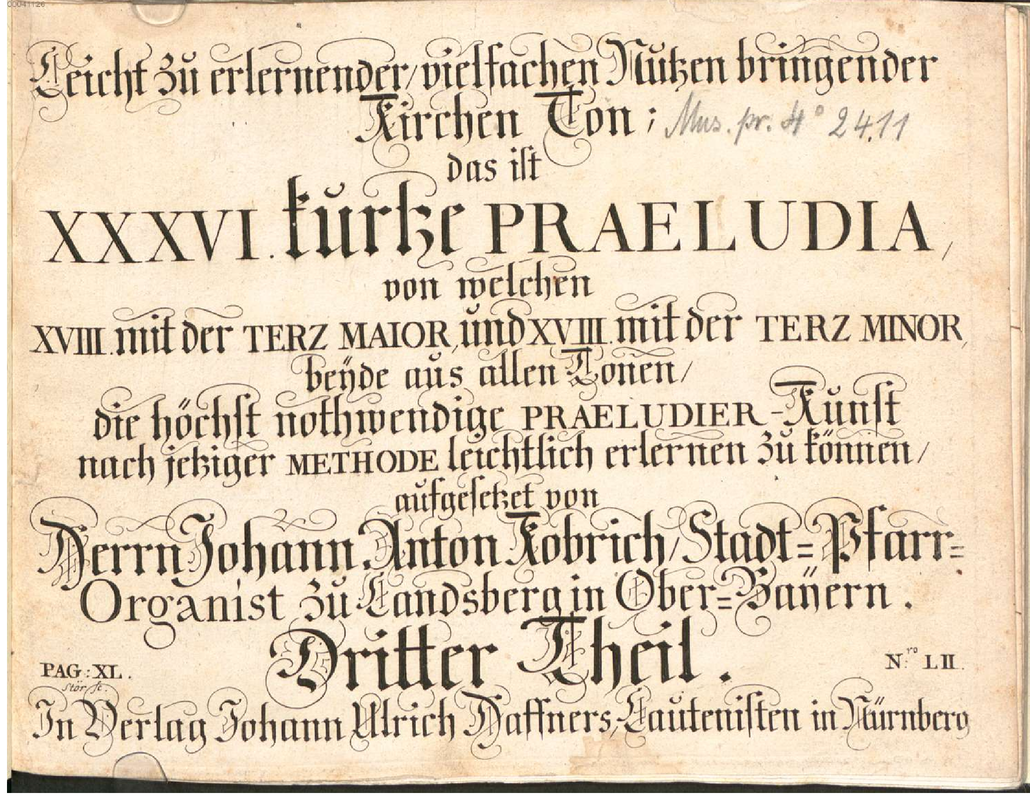 00041126
Leicht zu erlernender/vielfachen Nutzen bringender
Kirchen Ton; Mus. pr. 4° 2411
das ist
XXXVI. kurtze PRAELUDIA,
von welchen
XVIII. mit der TERZ MAIOR, und XVIII. mit der TERZ MINOR,
beÿde aus allen Tonen/
die höchst nothwendige PRAELUDIER-Kunst
nach jetziger METHODE leichtlich erlernen zu können/
aufgesetzet von
Herrn Johann Anton Kobrich/Stadt=Pfarr=
Organist zu Landsberg in Ober=Baÿern.
Dritter Theil.
PAG: XL. N:ro LII.
Stör sc.
In Verlag Johann Ulrich Haffners, Lautenisten in Nürnberg